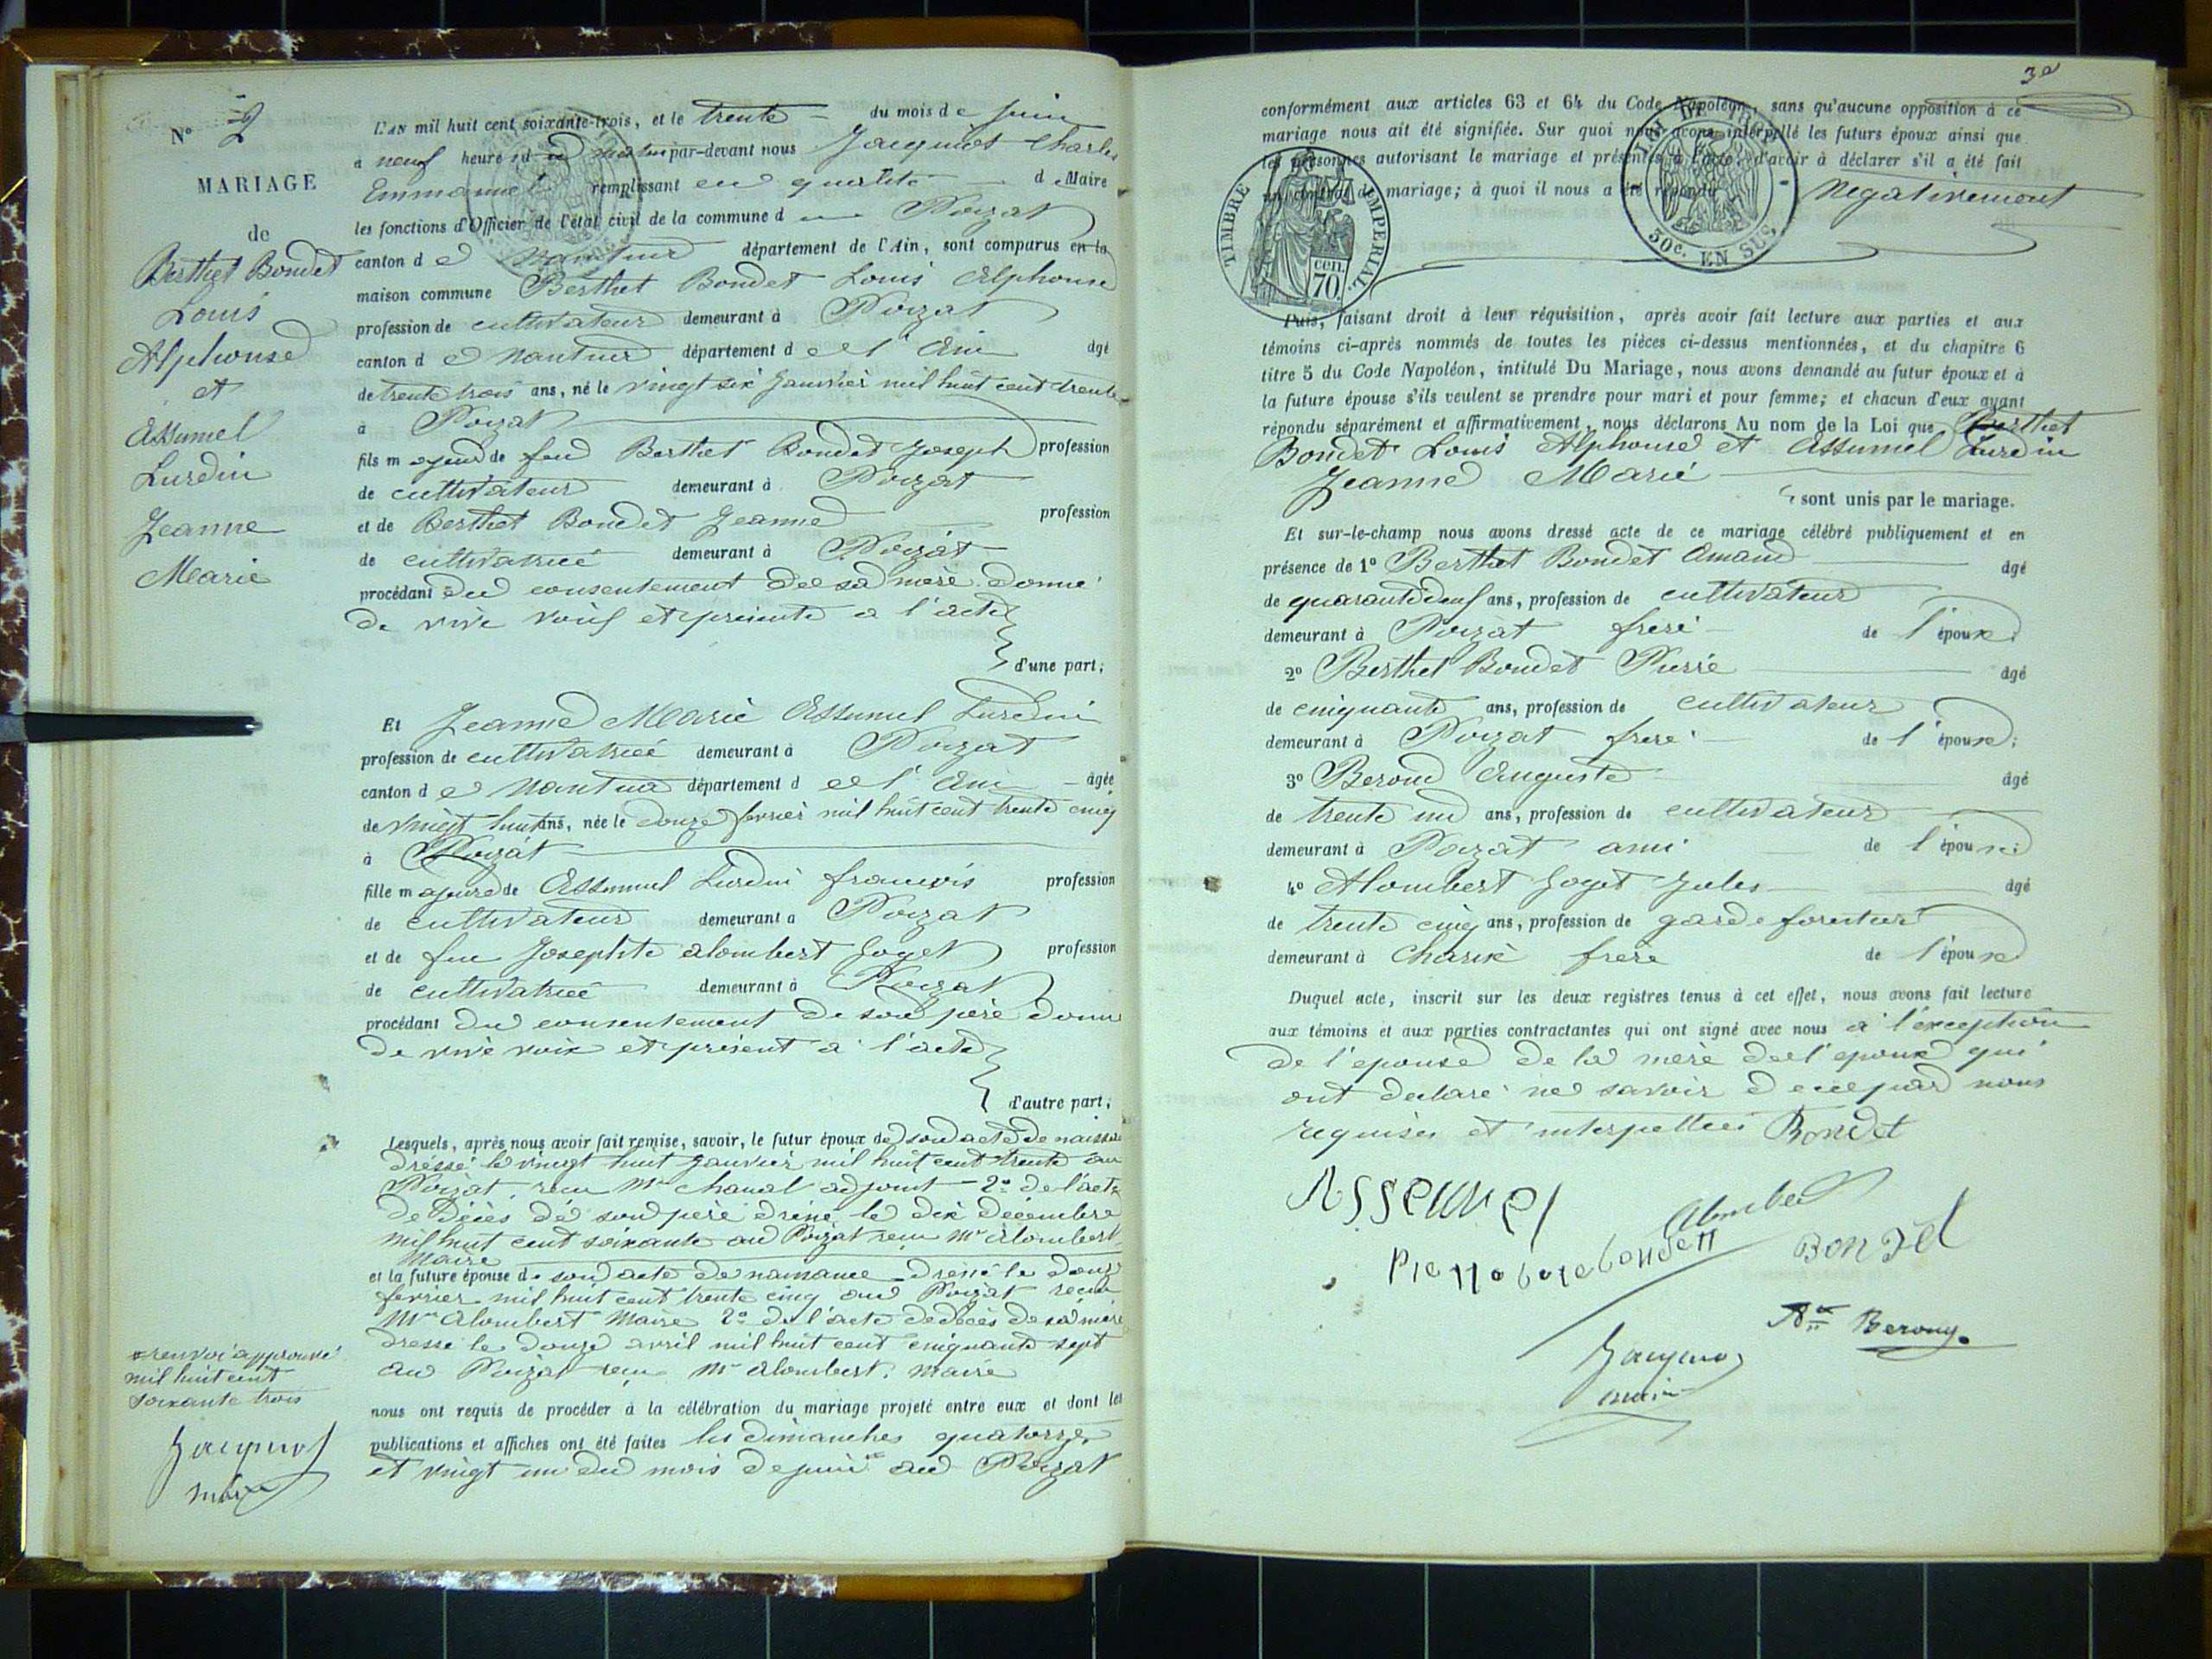 N° 2
MARIAGE
de
Berthet Bondet
Louis
Alphonse
et
Assumel
Lurdin
Jeanne
Marie
L'AN mil huit cent soixante-trois, et le trente du mois de juin
a neuf heures du matin par-devant nous Jacquiot Charles
Emmanuel remplissant en qualité de Maire
les fonctions d'Officier de l'état civil de la commune d Poizat
canton de Nantua département de l'Ain, sont comparus en la
maison commune Berthet Bondet Louis Alphonse
profession de cultivateur demeurant à Poizat
canton de Nantua département de l'Ain âgé
de trente trois ans, né le vingt six janvier mil huit cent trente
à Poizat
fils majeur de feu Berthet Bondet Joseph profession
de cultivateur demeurant à Poizat
et de Berthet Bondet Jeanne profession
de cultivatrice demeurant à Poizat
procédant du consentement de sa mère donné
de vive voix et présente a l'acte
d'une part;
Et Jeanne Marie Assumel Lurdin
profession de cultivatrice demeurant à Poizat
canton de Nantua département de l'Ain âgée
de vingt huit ans, née le douze fevrier mil huit cent trente cinq
à Poizat
fille majeure de Assumel Lurdin françois profession
de cultivateur demeurant a Poizat
et de feu Josephte alombert Goget profession
de cultivatrice demeurant à Poizat
procédant du consentement de son père donné
de vive voix et présent a l'acte
d'autre part;
Lesquels, après nous avoir fait remise, savoir, le futur époux de son acte de naissance
dressé le vingt huit janvier mil huit cent trente au
Poizat reçu Mr chanal adjoint 2° de l'acte
de décès de son père dressé le dix décembre
mil huit cent soixante au Poizat reçu Mr alombert
Maire
et la future épouse de son acte de naissance dressé le douze
fevrier mil huit cent trente cinq au Poizat reçu
Mr alombert Maire 2° de l'acte de décès de sa mère
dressé le douze avril mil huit cent cinquante sept
au Poizat reçu Mr alombert, maire
nous ont requis de procéder à la célébration du mariage projeté entre eux et dont les
publications et affiches ont été faites les dimanches quatorze
et vingt un du mois de juin au Poizat
renvoi approuvé
mil huit cent
soixante trois
Jacquiot
maire
3
conformément aux articles 63 et 64 du Code Napoléon, sans qu'aucune opposition à ce
mariage nous ait été signifiée. Sur quoi nous avons interpellé les futurs époux ainsi que
les personnes autorisant le mariage et présentes à l'acte, d'avoir à déclarer s'il a été fait
un contrat de mariage; à quoi il nous a été répondu Negativement
TIMBRE IMPERIAL
cen. 70.
50c. EN SUS
Puis, faisant droit à leur réquisition, après avoir fait lecture aux parties et aux
témoins ci-après nommés de toutes les pièces ci-dessus mentionnées, et du chapitre 6
titre 5 du Code Napoléon, intitulé Du Mariage, nous avons demandé au futur époux et à
la future épouse s'ils veulent se prendre pour mari et pour femme; et chacun d'eux ayant
répondu séparément et affirmativement, nous déclarons Au nom de la Loi que Berthet
Bondet Louis Alphonse et Assumel Lurdin
Jeanne Marie
sont unis par le mariage.
Et sur-le-champ nous avons dressé acte de ce mariage célébré publiquement et en
présence de 1° Berthet Bondet Amand âgé
de ans, profession de cultivateur
demeurant à Poizat frere de l'époux;
2° Berthet Bondet Pierre âgé
de cinquante ans, profession de cultivateur
demeurant à Poizat frere de l'époux;
3° Beroud Auguste âgé
de trente un ans, profession de cultivateur
demeurant à Poizat ami de l'époux;
4° Alombert Goget Jules âgé
de trente cinq ans, profession de garde forestier
demeurant à Charix frère de l'épouse
Duquel acte, inscrit sur les deux registres tenus à cet effet, nous avons fait lecture
aux témoins et aux parties contractantes qui ont signé avec nous a l'exception
de l'epouse de la mère de l'epoux qui
ont declaré ne savoir de ce par nous
requises et interpellées Bondet
Assemel
Alomber
Bondet
Beroud
Jacquiot
maire